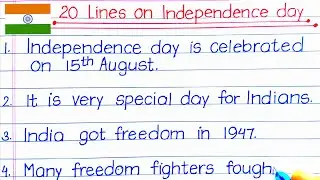 20 Lines on Independence day
1. Independence day is celebrated
on 15th August.
2. It is very special day for Indians.
3. India got freedom in 1947.
4. Many freedom fighters fough